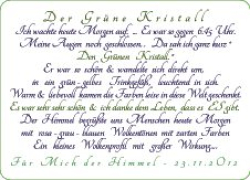 Der Grüne Kristall
Ich wachte heute Morgen auf ... Es war so gegen 6.45 Uhr.
Meine Augen noch geschlossen... Da sah ich ganz kurz "
Den Grünen Kristall."
Er war so schön & wandelte sich direkt um,
in ein grün-gelbes Trinkgefäß, leuchtend in sich.
Warm & liebevoll kamen die Farben leise in diese Welt geschwebt.
Es war sehr sehr schön & ich danke dem Leben, dass es ES gibt.
Der Himmel begrüßte uns Menschen heute Morgen
mit rosa-grau-blauen Wolkentönen mit zarten Farben
Ein kleines Wolkenprofil mit großer Wirkung...
Für Mich der Himmel - 23.11.2012